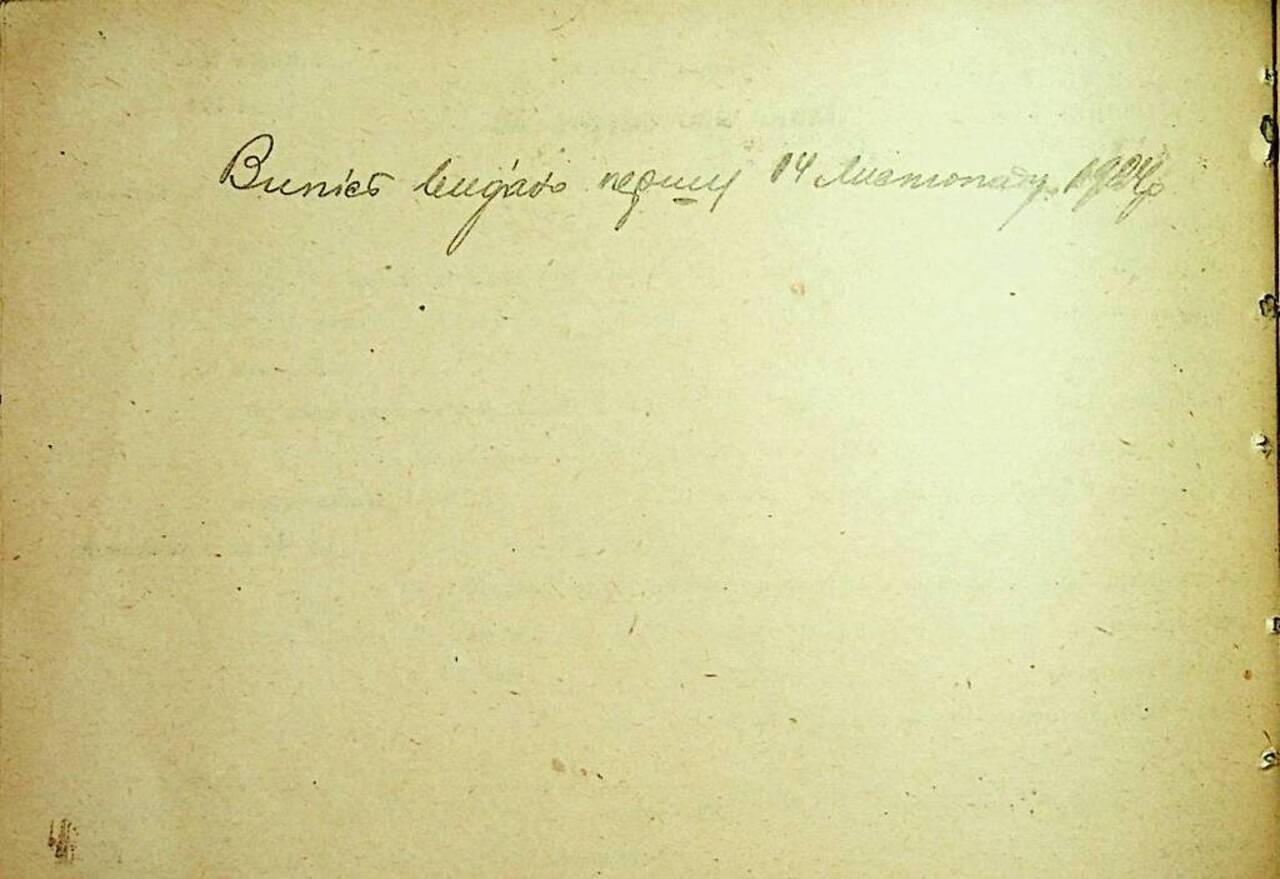 Випісь видано першу 14 Листопаду 1924р